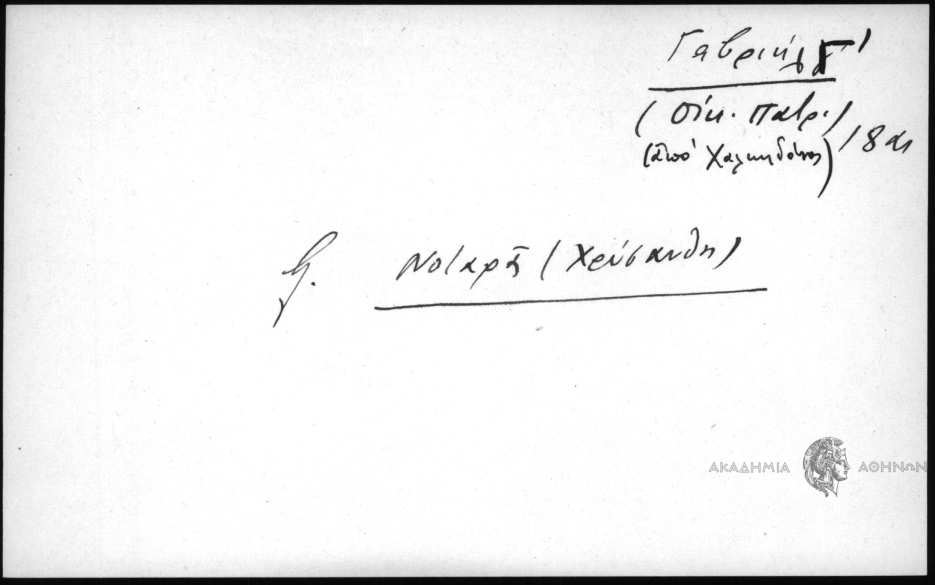 Γαβριήλ Γ'
(Οἰκ. Πατρ.)
(ἀπό Χαλκηδόνος) 18 αι
Νοταρᾶ (Χρύσανθη)
ΑΚΑΔΗΜΙΑ ΑΘΗΝΩΝ